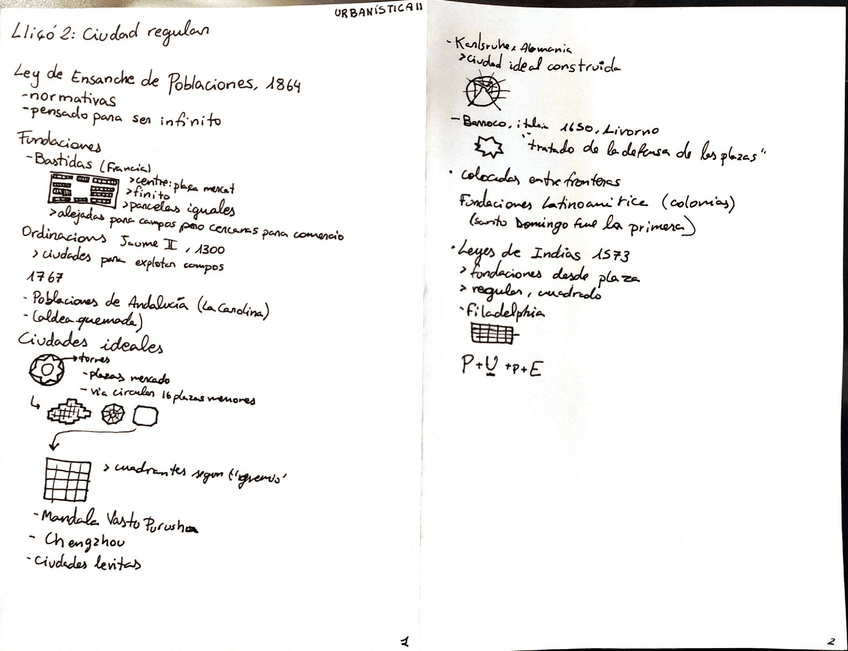 URBANÍSTICA II
Lliçó 2: Ciudad regular
Ley de Ensanche de Poblaciones, 1864
-normativas
-pensado para ser infinito
Fundaciones
-Bastidas (Francia)
>centre: plaça mercat
>finito
>parcelas iguales
>alejadas para campos pero cercanas para comercio
Ordinacions Jaume II, 1300
> ciudades para explotar campos
1767
- Poblaciones de Andalucía (La Carolina)
- (aldea quemada)
Ciudades ideales
torres
-plazas mercado
-via circular 16 plazas menores
> cuadrantes segun
-Mandala Vasto Purusha
- Chengzhou
-Ciudades levitas
1
-Karlsruhe, Alemania
>ciudad ideal construida
-Barroco, italia 1650, Livorno
"tratado de la defensa de las plazas"
• colocadas entre fronteras
Fundaciones Latinoamérica (colonias)
(santo Domingo fue la primera)
• Leyes de Indias 1573
> fundaciones desde plaza
> regular, cuadrado
-Filadelphia
P+U+P+E
2